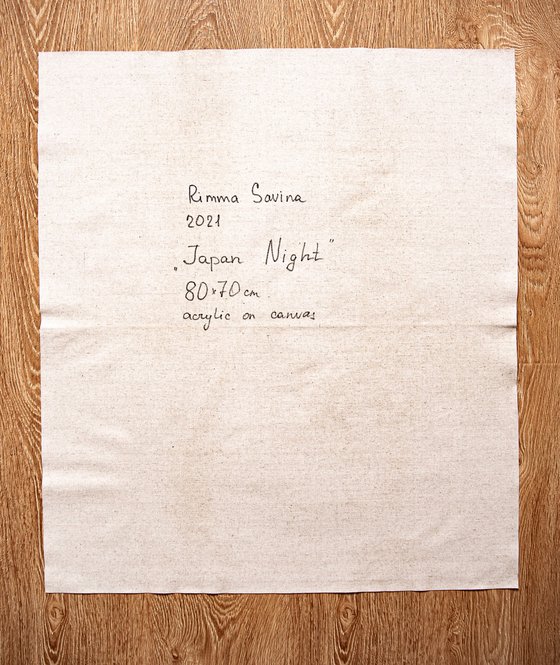 Rimma Savina
2021
„Japan Night"
80x70 cm
acrylic on canvas